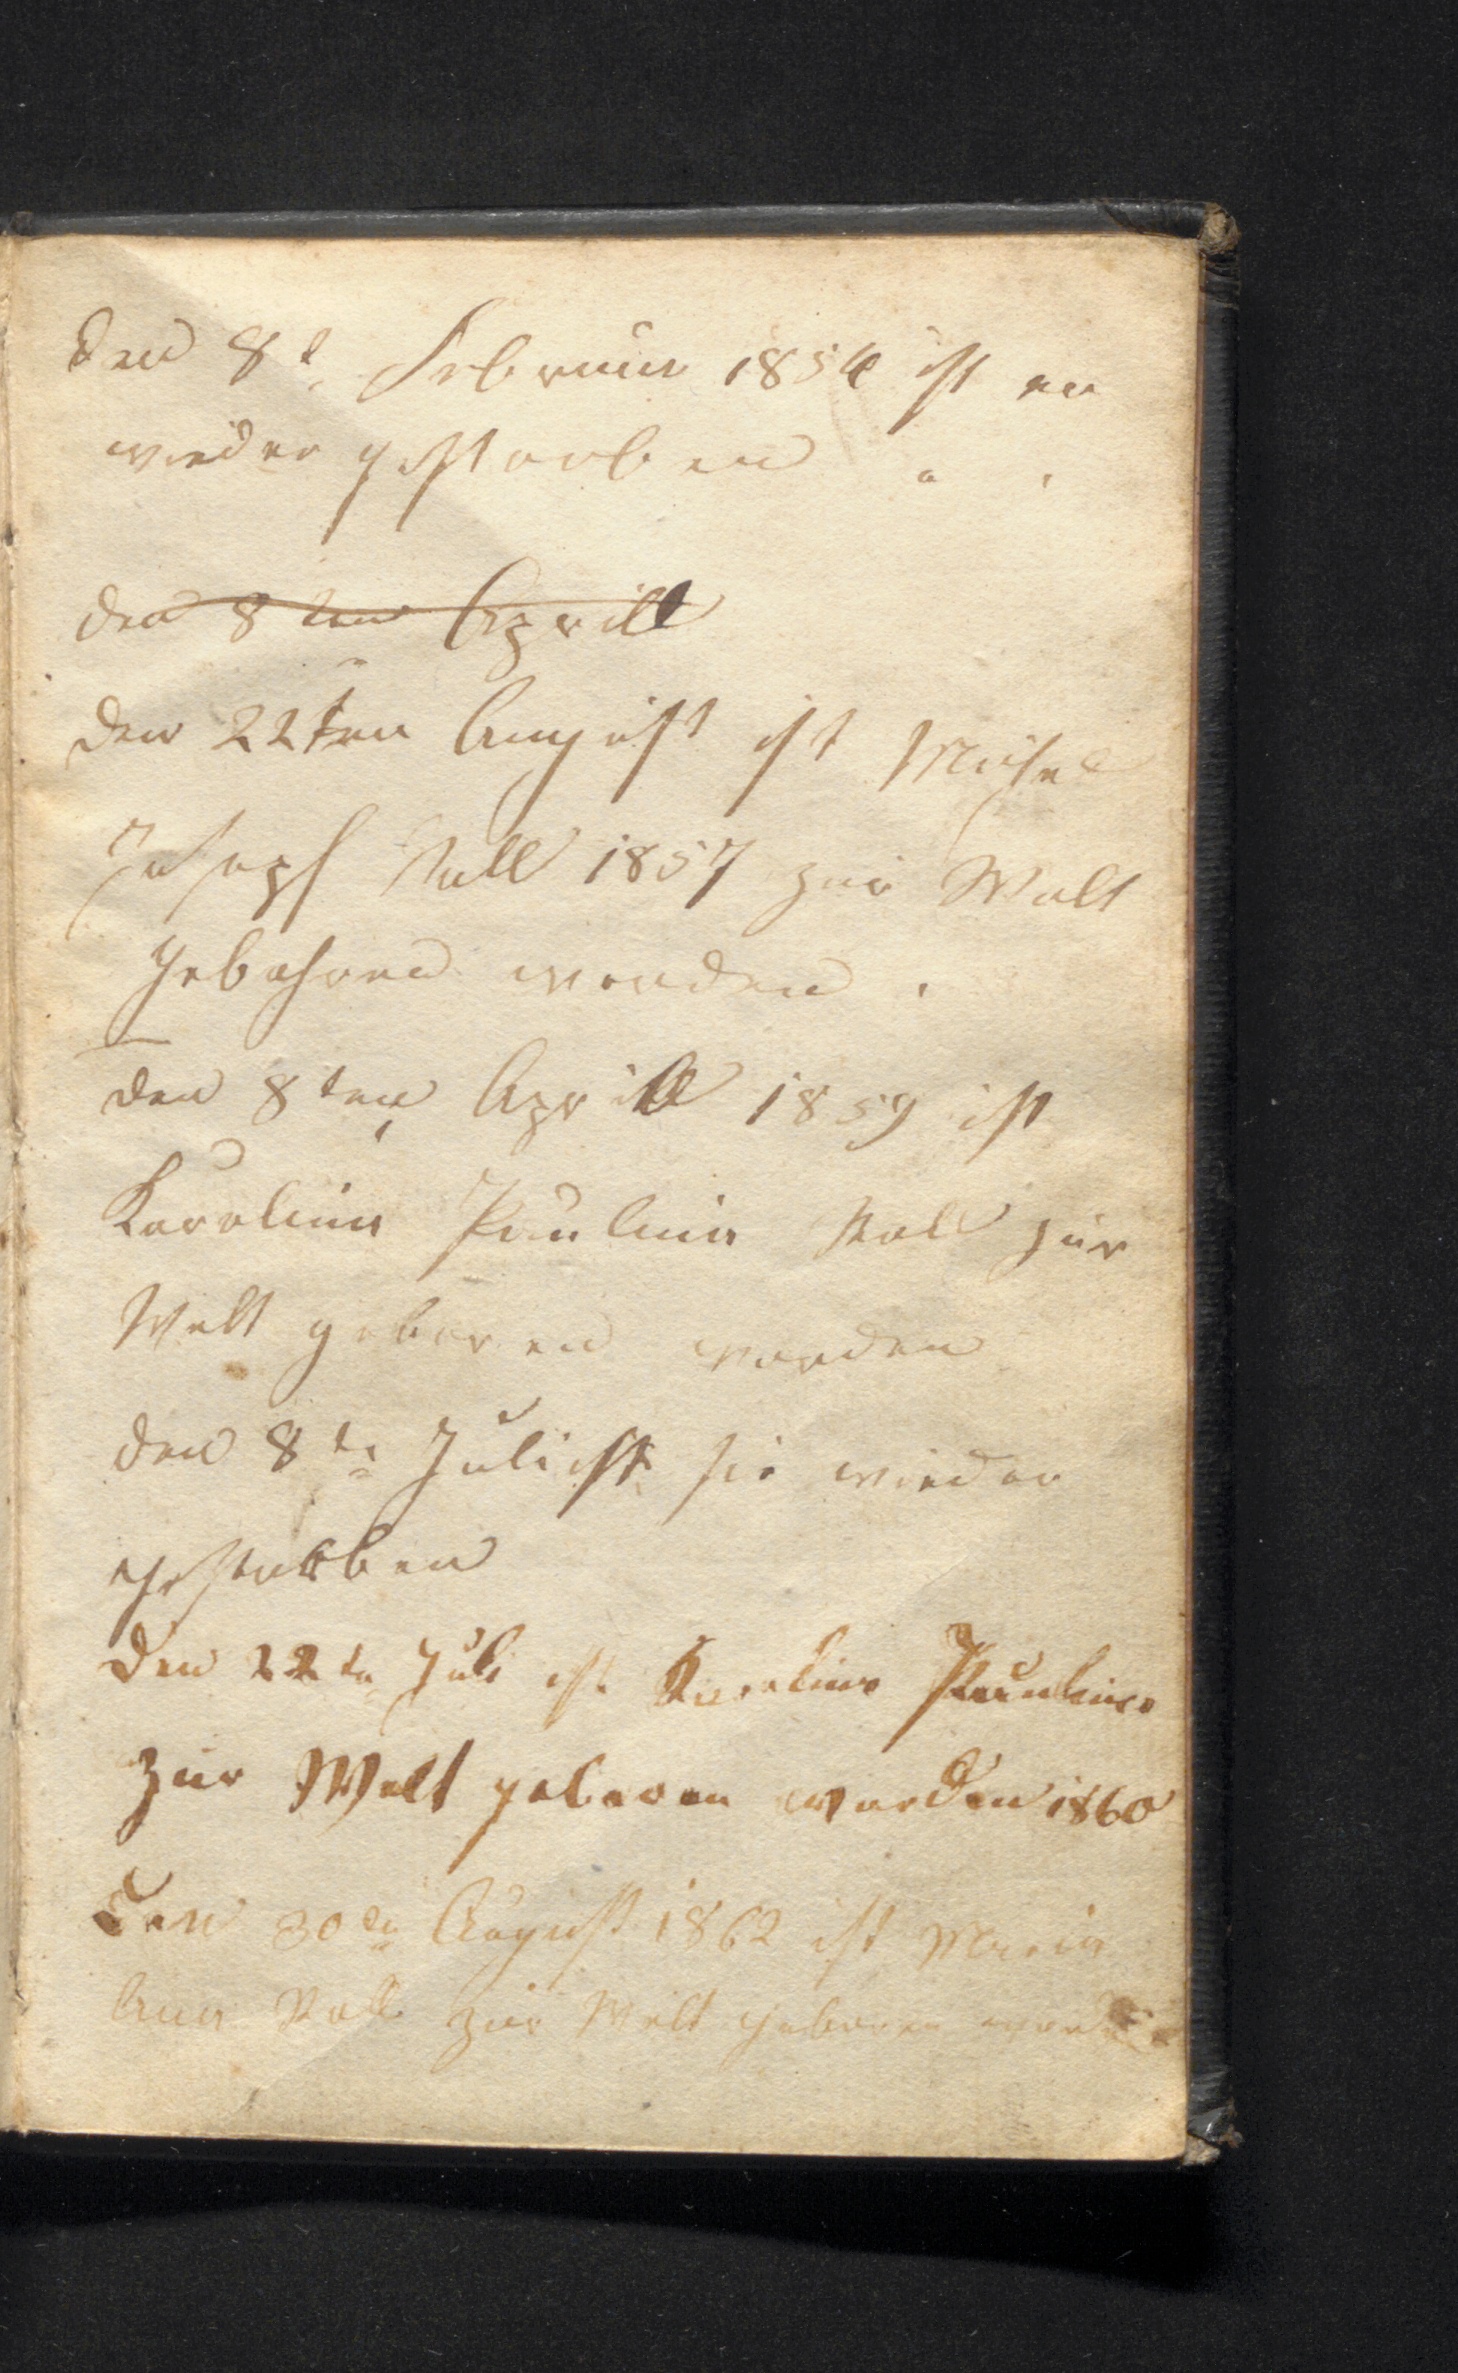 den 8t Februar 1854 ist er
wieder gestorben
den 8ten Aprill
den 22ten August ist Michel
Joseph Stoll 1857 zur Welt
gebohren worden.
den 8ten Aprill 1859 ist
Karolina Paulina Stoll zur
Welt geboren worden
den 8te Juli ist sie wieder
gestorben
den 22te Juli ist Karolina Paulina
zur Welt geboren worden 1860
Den 30te August 1862 ist Maria
Anna Stoll zur Welt geboren